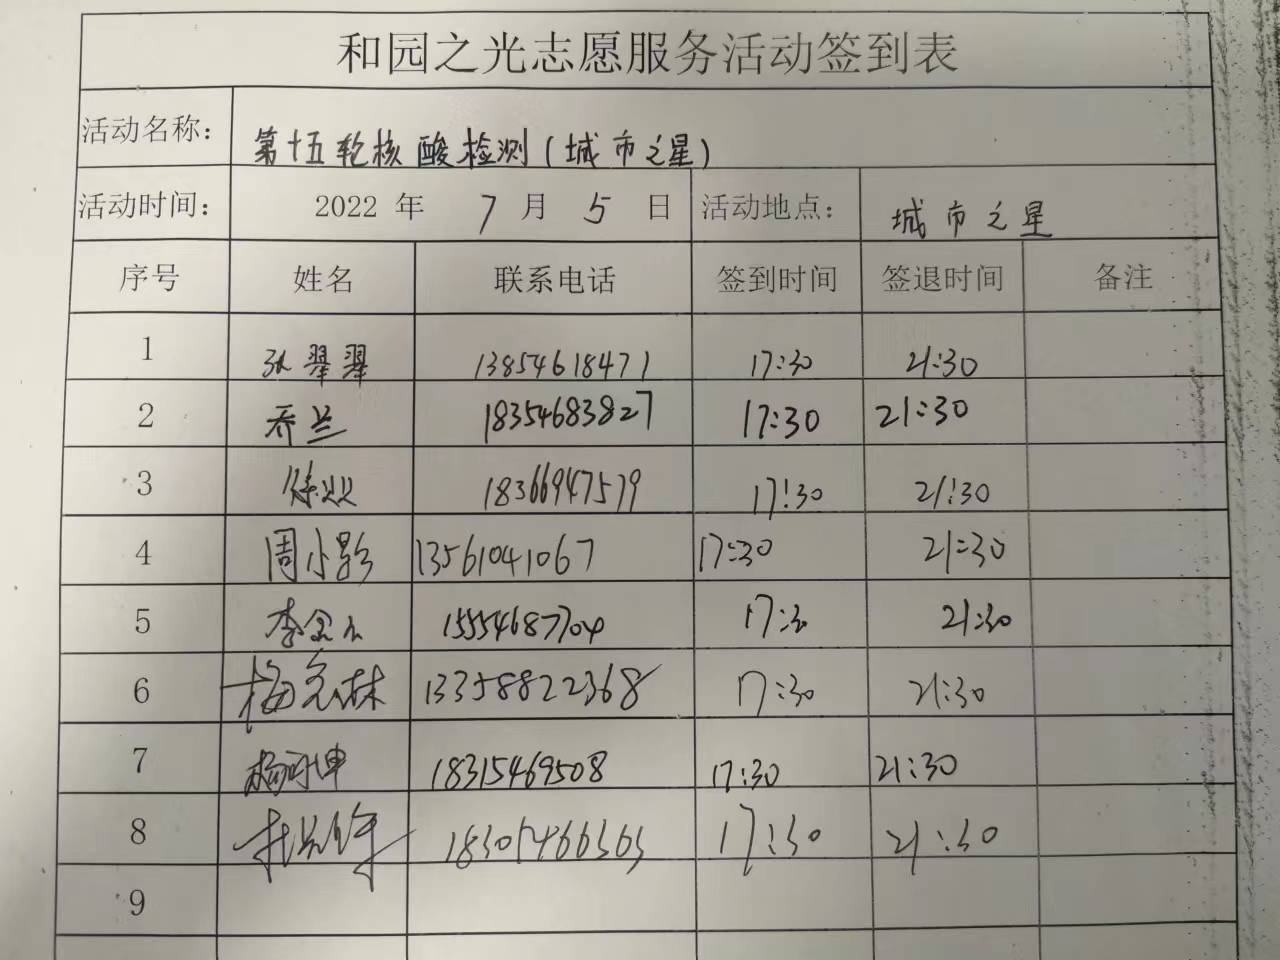 和园之光志愿服务活动签到表
活动名称： 第十五轮核酸检测（城市之星）
活动时间： 2022 年 7 月 5 日 活动地点： 城市之星
序号 姓名 联系电话 签到时间 签退时间 备注
1 翠翠 13854618471 17:30 21:30
2 乔兰 18354683827 17:30 21:30
3 18366947579 17:30 21:30
4 周小影 13561041067 17:30 21:30
5 李 15554687704 17:30 21:30
6 梅 林 13358822368 17:30 21:30
7 杨 坤 18315469508 17:30 21:30
8 17:30 21:30
9